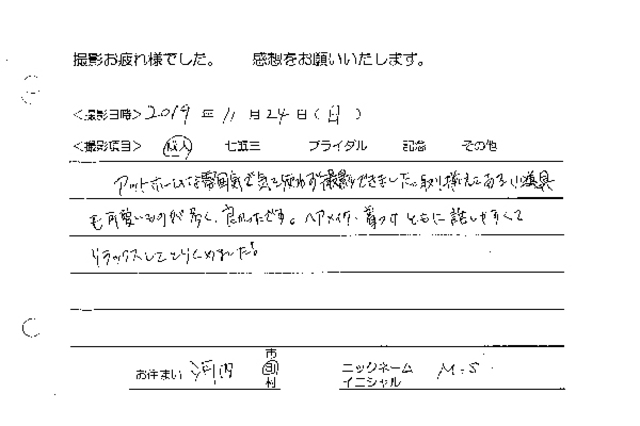 撮影お疲れ様でした。 感想をお願いいたします。
<撮影日時> 2019 年 11 月 24 日 ( 日 )
<撮影項目> 成人 七五三 ブライダル 記念 その他
アットホームな雰囲気で気を使わず撮影できました。取り揃えてある小道具
も可愛いものが多く、良かったです。ヘアメイク・着つけ ともに話しやすくて
リラックスしてとりくめました!
お住まい 河内 市 町 村
ニックネーム イニシャル M.S